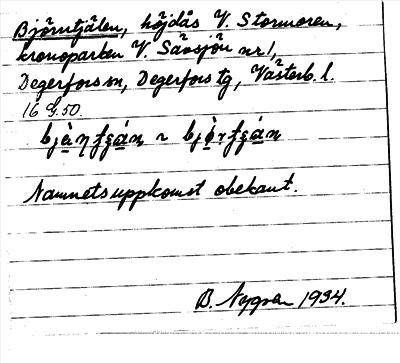 Björntjälen, höjdås V. Stormoren,
kronoparken V. Sävsjön nr 1,
Degerfors sn, Degerfors tg, Västerb. l.
16 G. 50.
Namnets uppkomst obekant.
B. Nygren 1934.